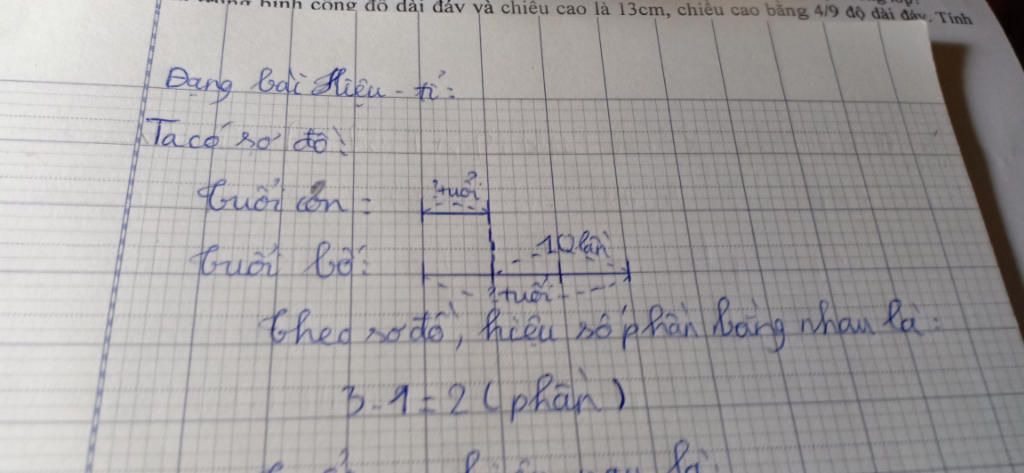 hình cộng độ dài đáy và chiều cao là 13cm, chiều cao bằng 4/9 độ dài đáy. Tính
Dạng bài Hiệu - tỉ:
Ta có sơ đồ:
? tuổi
tuổi con:
10 lần
tuổi bố:
? tuổi
theo sơ đồ, hiệu số phần bằng nhau là:
3 - 1 = 2 (phần)